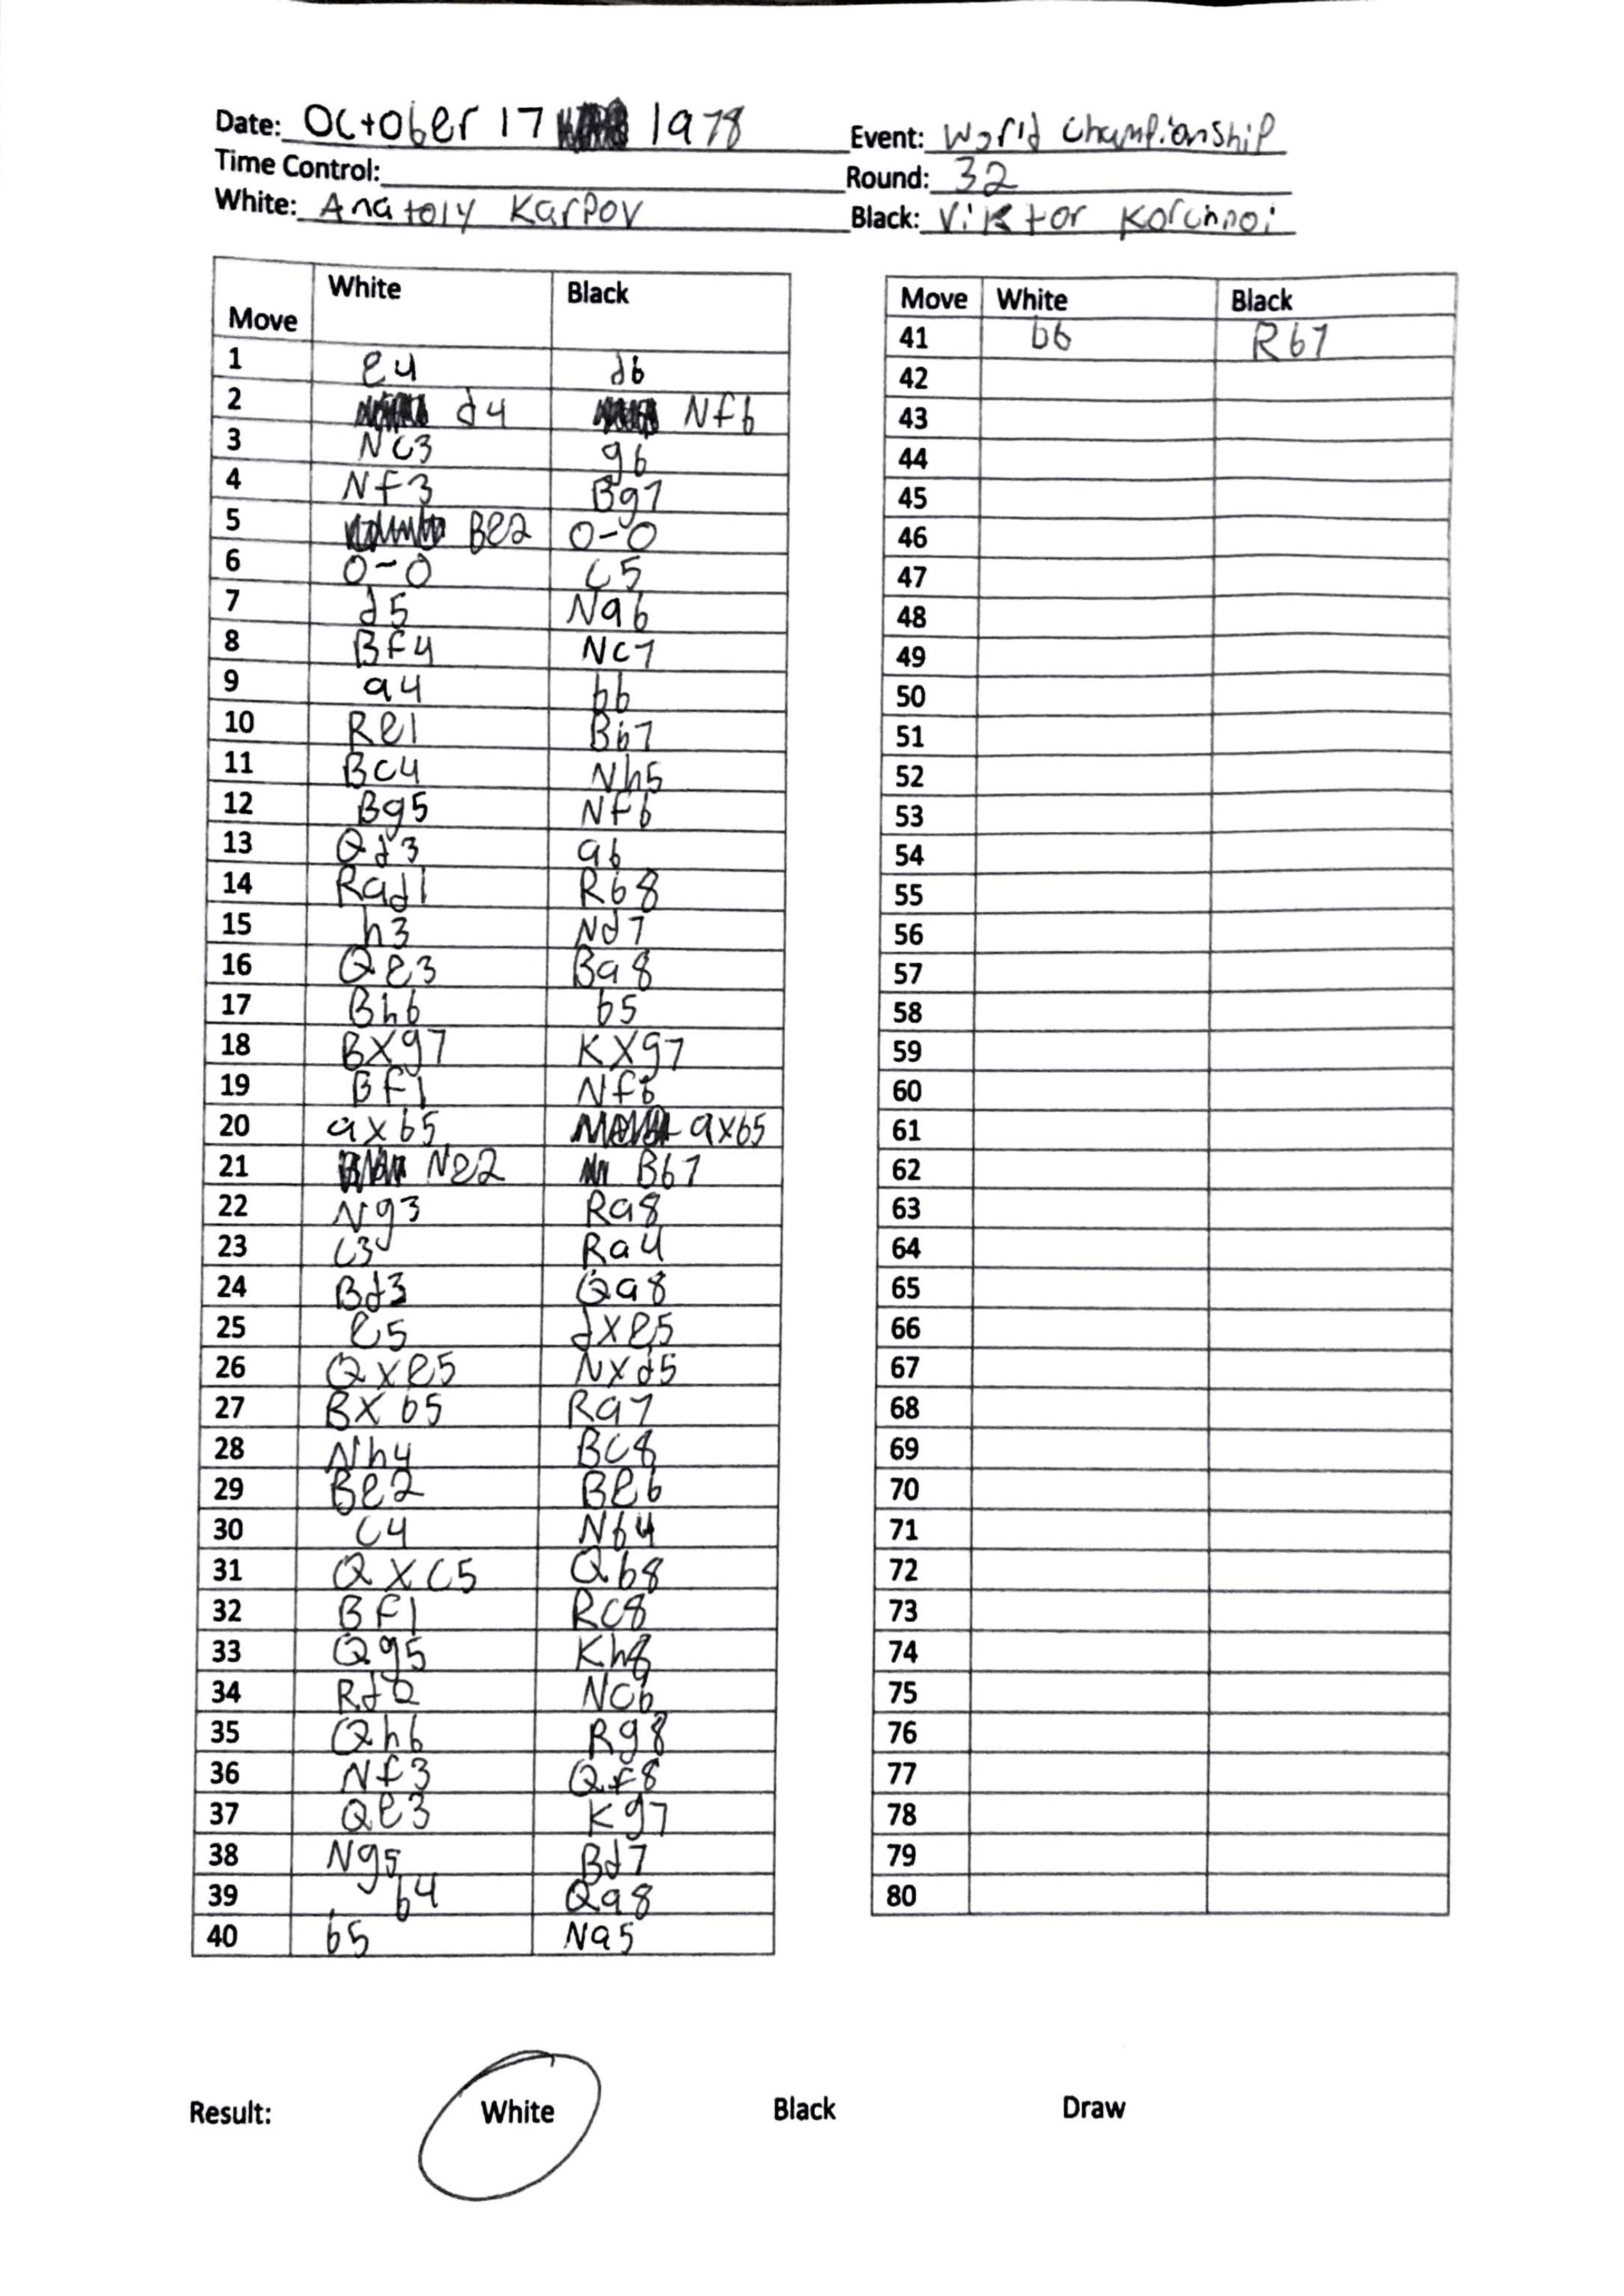 Date: October 17 1978 Event: World Championship
Time Control: Round: 32
White: Anatoly Karpov Black: Viktor Korchnoi
Move White Black
1 e4 d6
2 d4 Nf6
3 Nc3 g6
4 Nf3 Bg7
5 Be2 0-0
6 0-0 c5
7 d5 Na6
8 Bf4 Nc7
9 a4 b6
10 Re1 Bb7
11 Bc4 Nh5
12 Bg5 Nf6
13 Qd3 a6
14 Rad1 Rb8
15 h3 Nd7
16 Qe3 Ba8
17 Bh6 b5
18 BXg7 KXg7
19 Bf1 Nf6
20 axb5 axb5
21 Ne2 Bb7
22 Ng3 Ra8
23 c3 Ra4
24 Bd3 Qa8
25 e5 dxe5
26 Qxe5 Nxd5
27 BX b5 Ra7
28 Nh4 Bc8
29 Be2 Be6
30 c4 Nb4
31 QXC5 Qb8
32 Bf1 Rc8
33 Qg5 Kh8
34 Rd2 Nc6
35 Qh6 Rg8
36 Nf3 Qf8
37 Qe3 Kg7
38 Ng5 Bd7
39 b4 Qa8
40 b5 Na5
Move White Black
41 b6 Rb7
42
43
44
45
46
47
48
49
50
51
52
53
54
55
56
57
58
59
60
61
62
63
64
65
66
67
68
69
70
71
72
73
74
75
76
77
78
79
80
Result: White Black Draw